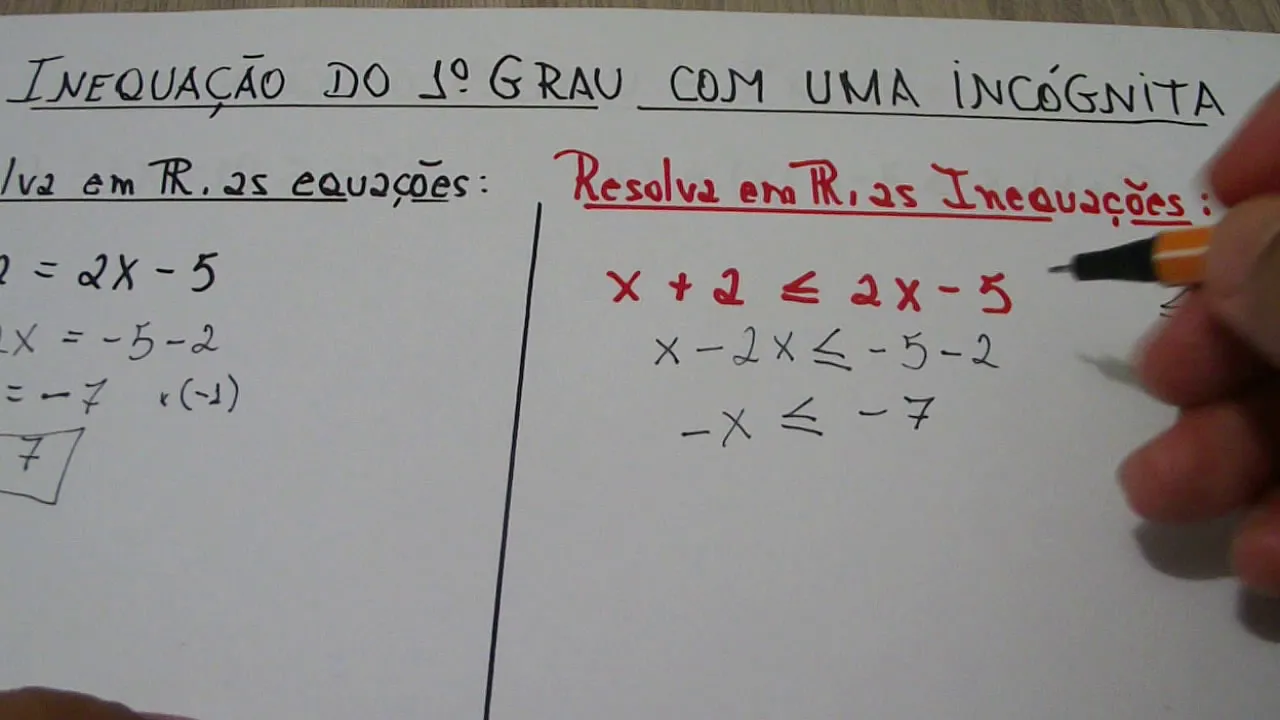 INEQUAÇÃO DO 1º GRAU COM UMA INCÓGNITA
lva em ℝ, as equações:
2 = 2x - 5
2x = -5 - 2
= -7 x(-1)
7
Resolva em ℝ, as Inequações:
x + 2 ≤ 2x - 5
x - 2x ≤ -5 - 2
-x ≤ -7
≤